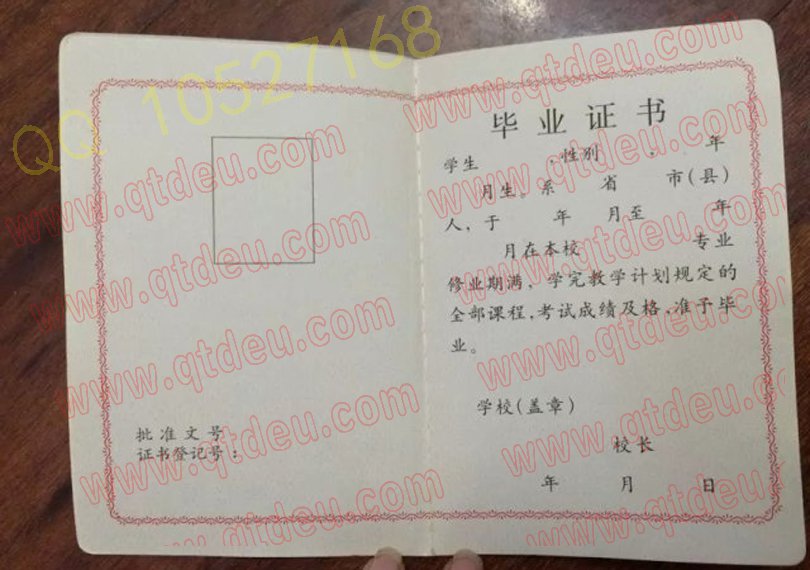 QQ 10527168
www.qtdeu.com
www.qtdeu.com
www.qtdeu.com
www.qtdeu.com
www.qtdeu.com
www.qtdeu.com
www.qtdeu.com
www.qtdeu.com
批准文号
证书登记号：
毕业证书
学生 ，性别 ， 年
月生。系 省 市(县)
人，于 年 月至 年
月在本校 专业
修业期满，学完教学计划规定的
全部课程，考试成绩及格，准予毕
业。
学校(盖章)
校长
年 月 日